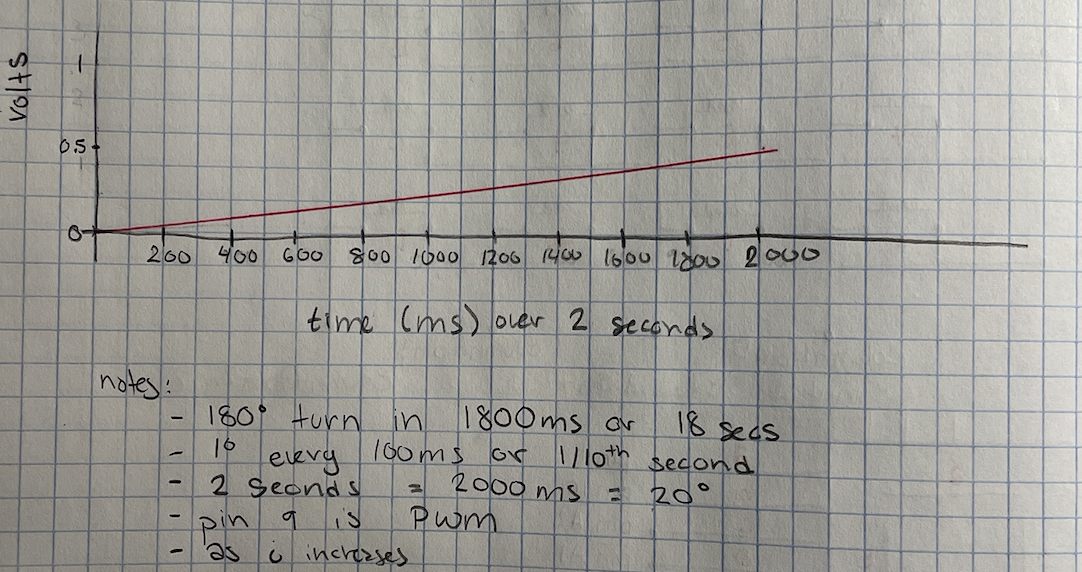 volts
1
0.5
0
200 400 600 800 1000 1200 1400 1600 1800 2000
time (ms) over 2 seconds
notes:
- 180° turn in 1800ms or 18 secs
- 1° every 100ms or 1/10th second
- 2 seconds = 2000 ms = 20°
- pin 9 is PWM
- as i increases